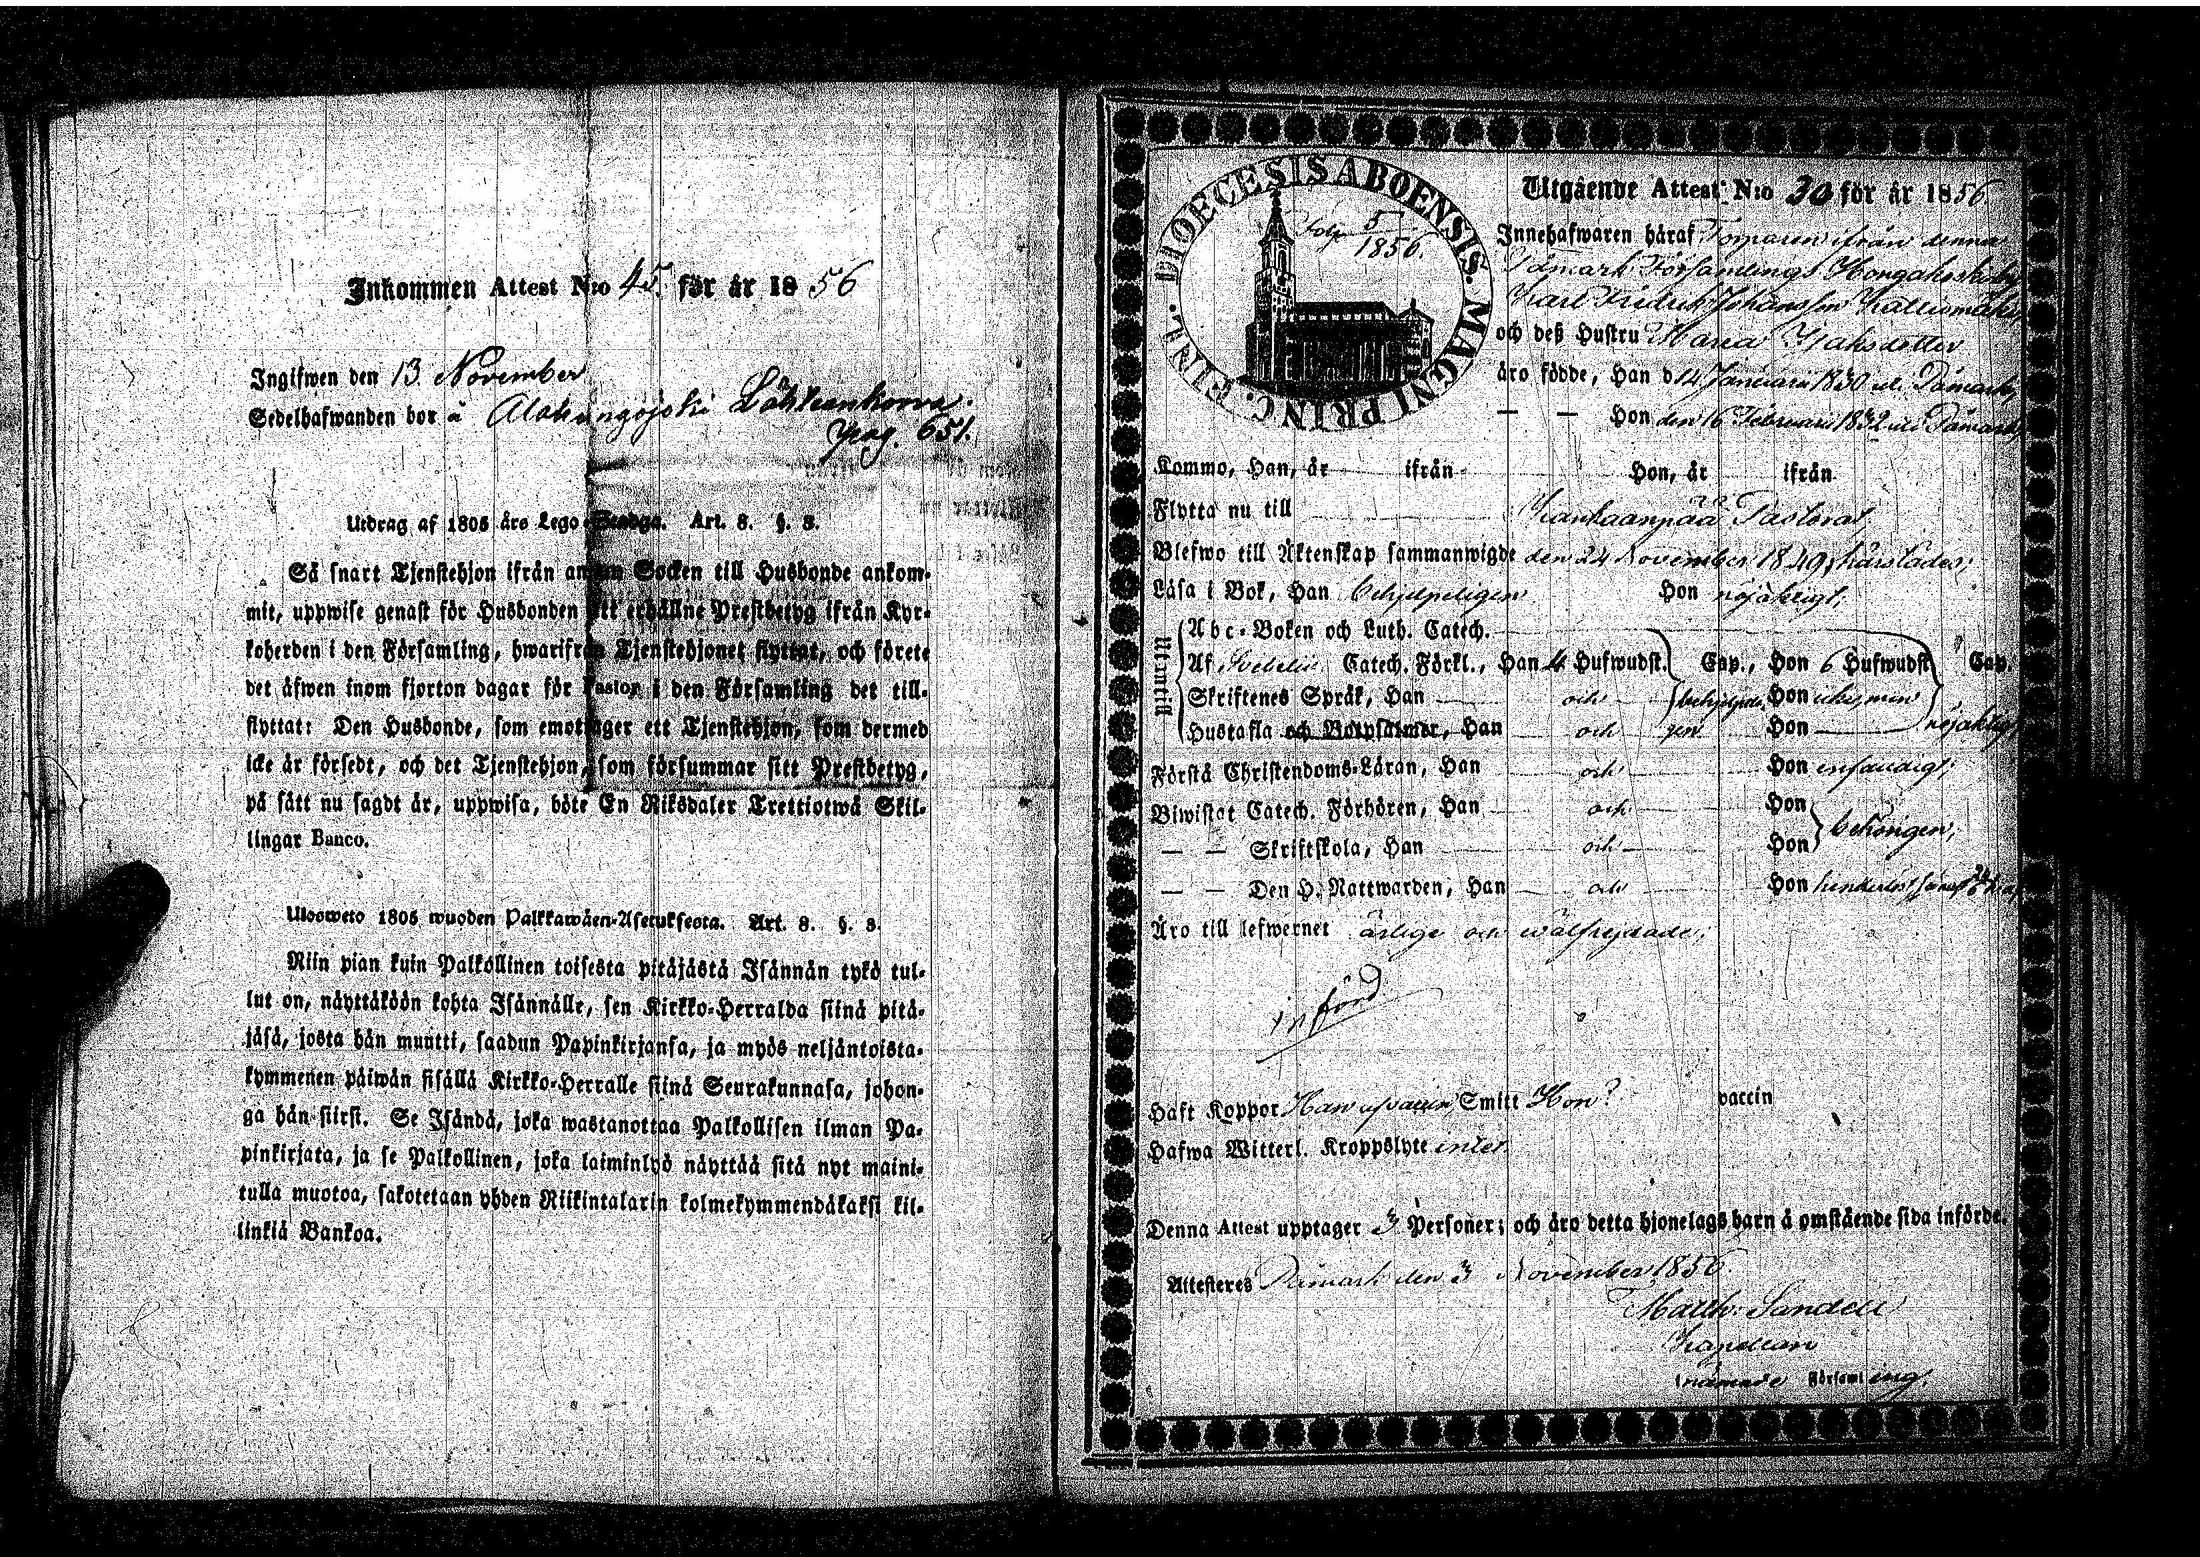 Inkommen Attest N:o 45. för år 1856
Ingifwen den 13 November
Sedelhafwanden bor å Alahongojoki Lähteenkorva.
pag. 651.
Utdrag af 1805 års Lego-Stadga. Art. 8. §. 3.
Så snart Tjenstehjon ifrån annan Socken till Husbonde ankom-
mit, uppwise genast för Husbonden sitt erhållne Prestbetyg ifrån Kyr-
koherden i den Församling, hwarifrån Tjenstehjonet flyttat, och förete
det äfwen inom fjorton dagar för Pastor i den Församling det till-
flyttat: Den Husbonde, som emottager ett Tjenstehjon, som dermed
icke är försedt, och det Tjenstehjon, som försummar sitt Prestbetyg,
på sätt nu sagdt är, uppwisa, böte En Riksdaler Trettiotwå Skil-
lingar Banco.
Ulosweto 1805 wuoden Palkkawäen-Asetuksesta. Art. 8. §. 3.
Niin pian kuin Palkollinen toisesta pitäjästä Isännän tykö tul-
lut on, näyttäköön kohta Isännälle, sen Kirkko-Herralda siinä pitä-
jäsä, josta hän muutti, saadun Papinkirjansa, ja myös neljäntoista-
kymmenen päiwän sisällä Kirkko-Herralle siinä Seurakunnasa, johon-
ga hän siirsi. Se Isändä, joka wastanottaa Palkollisen ilman Pa-
pinkirjata, ja se Palkollinen, joka laiminlyö näyttää sitä nyt maini-
tulla muotoa, sakotetaan yhden Riikintalarin kolmekymmendäkaksi kil-
linkiä Bankoa.
DIOECESIS ABOENSIS. MAGNI PRINC. FINL.
5
1856.
Utgående Attest N:o 30 för år 1856
Innehafwaren häraf Torparen ifrån denna
Tämark Församlings Hongakoski by
Karl Fridrik Johansson Kalliomäki
och deß Hustru Maria Isaksdotter
äro födde, Han d 14 Januarii 1830 i Tämark,
— — Hon den 16 Februarii 1832 i Tämark,
Kommo, Han, år ifrån Hon, år ifrån
Flytta nu till Kankaanpää Pastorat,
Blefwo till Äktenskap sammanwigde den 24 November 1849, härstädes;
Läsa i Bok, Han behjelpeligen Hon nöjaktigt;
Utantill
Abc-Boken och Luth. Catech.
Af Svebelii Catech. Förkl., Han 4 Hufwudst. Cap., Hon 6 Hufwudst. Cap.
Skriftenes Språk, Han och Hon
Hustafla och Botpsalmer, Han och Hon nöjaktigt,
Förstå Christendoms-Läran, Han och Hon enfaldigt;
Biwistat Catech. Förhören, Han och Hon
— — Skriftskola, Han och Hon behörigen;
— — Den H. Nattwarden, Han och Hon
Äro till lefwernet ärlige och wälfrejdade;
införd
Haft Koppor Han Smitt Hon? vaccin
Hafwa Witterl. Kroppslyte intet
Denna Attest upptager 3 Personer; och äro detta hjonelags barn å omstående sida införde.
Attesteras Tämark den 3 November 1856
Matth: Sandell
Kapellan
Församling.